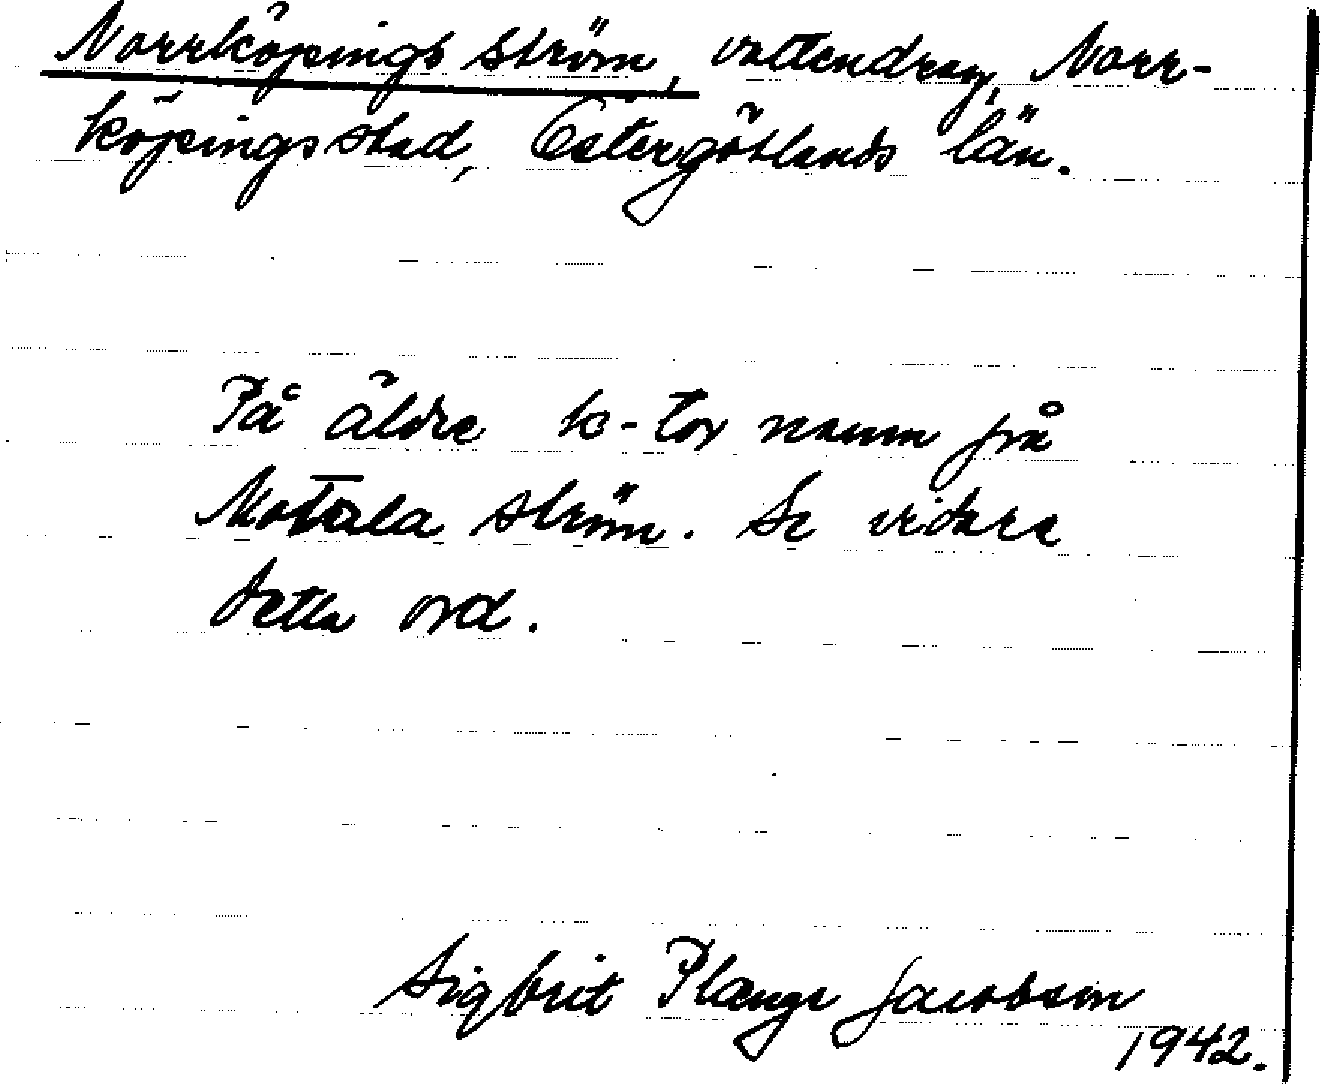 Norrköpings ström, vattendrag, Norr-
köpings stad, Östergötlands län.
På äldre k-tor namn på
Motala ström. Se vidare
detta ord.
Sigbrit Plænge Jacobson
1942.